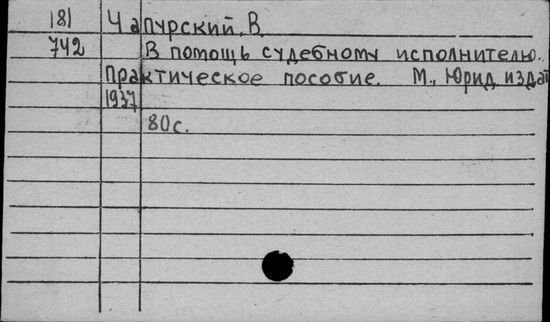 181 Чапурский, В
742 В помощь судебному исполнителю.
Практическое пособие. М., Юрид. издат
1937
80с.